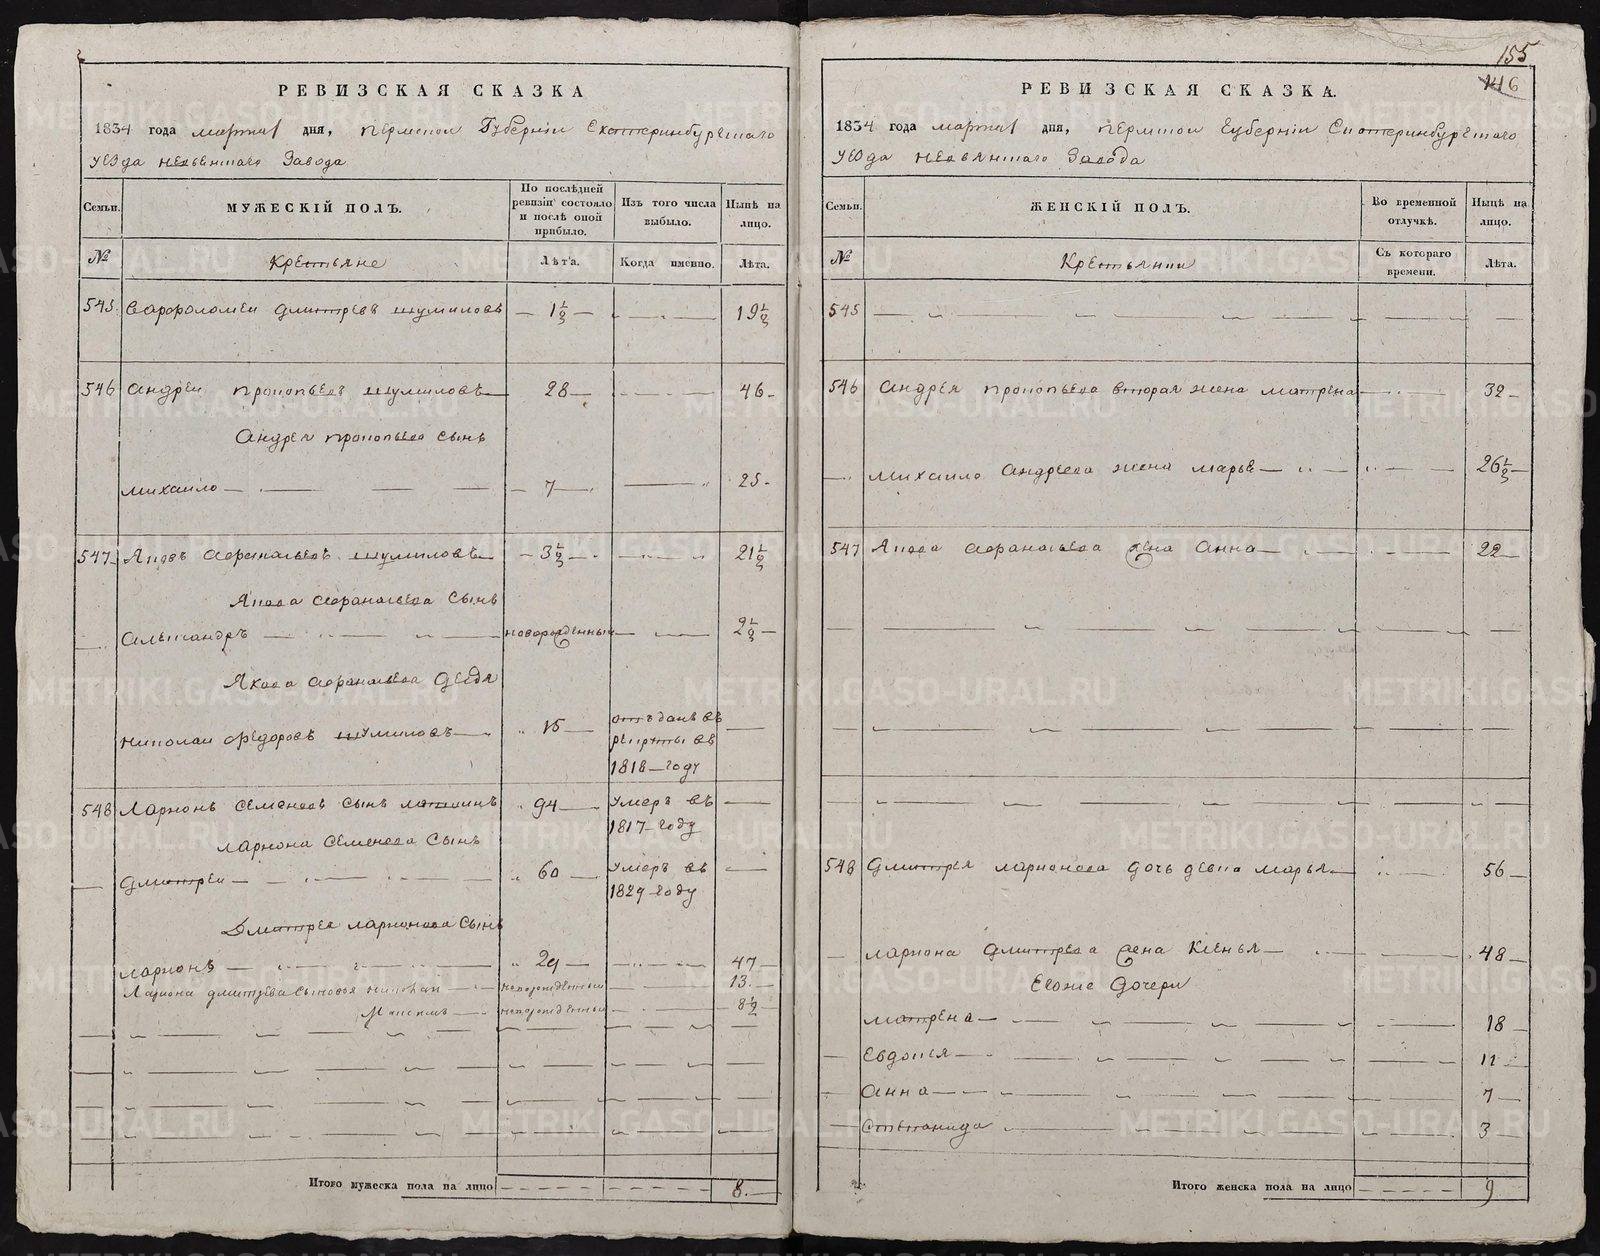 155
146
РЕВИЗСКАЯ СКАЗКА
1834 года марта 1 дня, Пермской Губернiи Екатеринбургскаго
уезда Невьянскаго Завода
Семьи. МУЖЕСКIЙ ПОЛЪ. По послѣдней ревизiи состояло и послѣ оной прибыло. Изъ того числа выбыло. Нынѣ на лицо.
№ Крестьяне Лѣта. Когда именно. Лѣта.
545 Варфоломеи Дмитревъ Шумиловъ 1½ 19½
546 Андреи Прокопьевъ Шумиловъ 28 46
Андрея Прокопьева сынъ
Михаило 7 25
547 Яковъ Афанасьевъ Шумиловъ 3½ 21½
Якова Афанасьева сынъ
Александръ новорожденныи 2½
Якова Афанасьева дядя
Николаи Федоровъ Шумиловъ 15 отъданъ въ
рекруты въ
1818 году
548 Ларионъ Семеновъ сынъ 94 умеръ въ
1817 году
Лариона Семенова сынъ
Дмитреи 60 умеръ въ
1829 году
Дмитрея Ларионова сынъ
Ларионъ 29 47
Лариона Дмитрева сыновья Николаи новорожденныи 13
Максимъ новорожденныи 8½
Итого мужеска пола на лицо 8.
РЕВИЗСКАЯ СКАЗКА.
1834 года марта 1 дня, Пермской Губернiи Екатеринбургскаго
уезда Невьянскаго Завода
Семьи. ЖЕНСКIЙ ПОЛЪ. Во временной отлучкѣ. Нынѣ на лицо.
№ Крестьянки Съ котораго времени. Лѣта.
545
546 Андрея Прокопьева вторая жена Матрена 32
Михаило Андреева жена Марья 26½
547 Якова Афанасьева жена Анна 22
548 Дмитрея Ларионова дочь девка Марья 56
Лариона Дмитрева жена Ксенья 48
Евоже дочери
Матрена 18
Евдокья 11
Анна 7
Степанида 3
Итого женска пола на лицо 9
METRIKI.GASO-URAL.RU